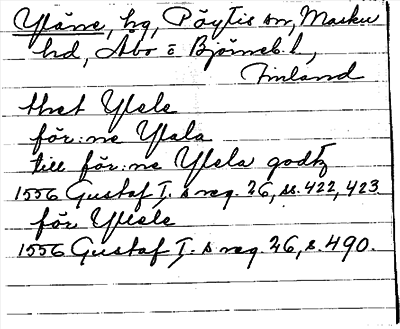 Yläne, hg, Pöytis sn, Masku
hd, Åbo o Björneb. l,
Finland
thet Ylele
för:ne Ylala
till för:ne Ylela godtz
1556 Gustaf I. s reg. 26, ss. 422, 423.
för Yllele
1556 Gustaf I. s reg. 26, s. 490.